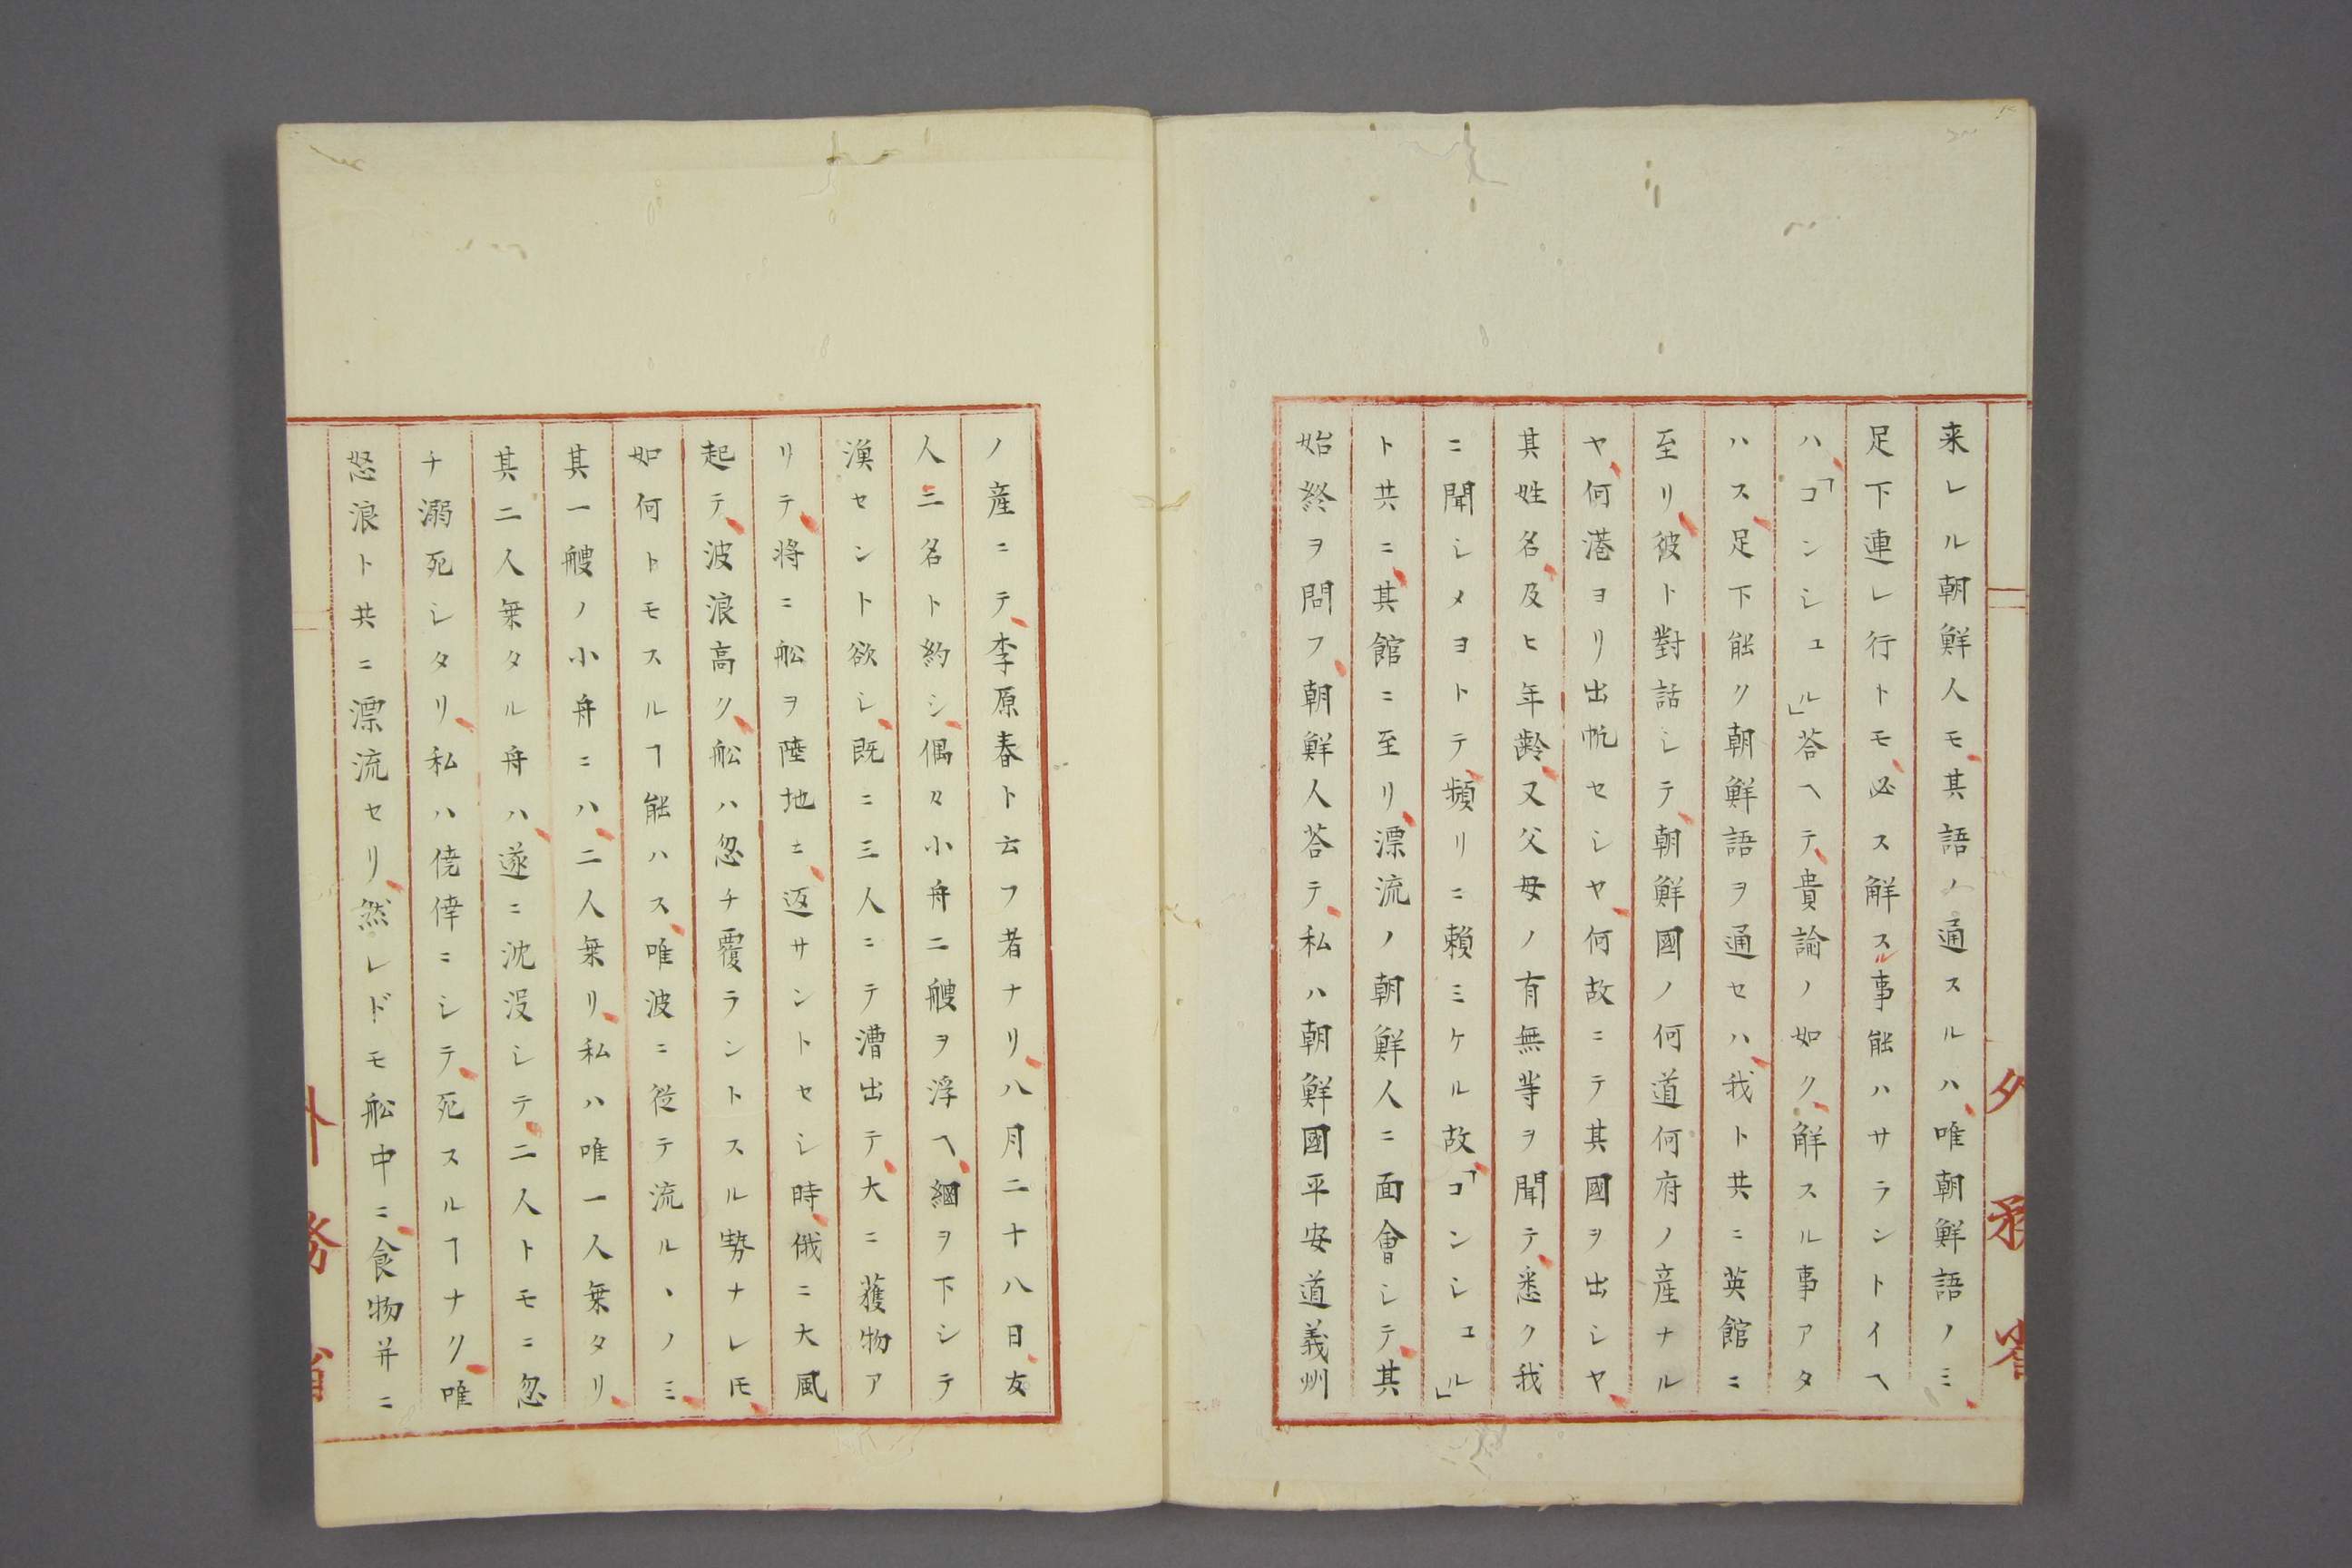 来レル朝鮮人モ、其語ノ通スルハ、唯朝鮮語ノミ、
足下連レ行トモ、必ス解スル事能ハサラントイヘ
ハ、「コンシュル」荅ヘテ、貴論ノ如ク、解スル事アタ
ハス、足下能ク朝鮮語ヲ通セハ、我ト共ニ英館ニ
至リ、彼ト對話シテ、朝鮮國ノ何道何府ノ産ナル
ヤ、何港ヨリ出帆セシヤ、何故ニテ其國ヲ出シヤ、
其姓名、及ヒ年齢、又父母ノ有無等ヲ聞テ、悉ク我
ニ聞シメヨトテ、頻リニ頼ミケル故、「コンシュル」
ト共ニ、其館ニ至リ、漂流ノ朝鮮人ニ面會シテ、其
始終ヲ問フ、朝鮮人荅テ、私ハ朝鮮國平安道義州
ノ産ニテ、李原春ト云フ者ナリ、八月二十八日、友
人三名ト約シ、偶々小舟二艘ヲ浮ヘ、網ヲ下シテ
漁セント欲シ、既ニ三人ニテ漕出テ、大ニ獲物ア
リテ、将ニ舩ヲ陸地ニ、返サントセシ時、俄ニ大風
起テ、波浪高ク、舩ハ忽チ覆ラントスル勢ナレ𪜈、
如何トモスルヿ能ハス、唯波ニ従テ流ルヽノミ、
其一艘ノ小舟ニハ、二人乗リ、私ハ唯一人乗タリ、
其二人乗タル舟ハ、遂ニ沈没シテ、二人トモニ忽
チ溺死シタリ、私ハ僥倖ニシテ、死スルヿナク、唯
怒浪ト共ニ漂流セリ、然レドモ舩中ニ、食物并ニ
外務省
外務省